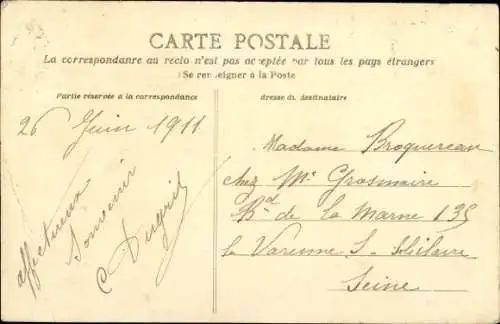 CARTE POSTALE
La correspondance au recto n'est pas acceptée par tous les pays étrangers
(Se renseigner à la Poste
Partie réservée à la correspondance
adresse du destinataire
26 Juin 1911
affectueux
Souvenir
Madame Broquereau
chez Mr Grosmaire
Bd de La Marne 135
La Varenne S-
Seine